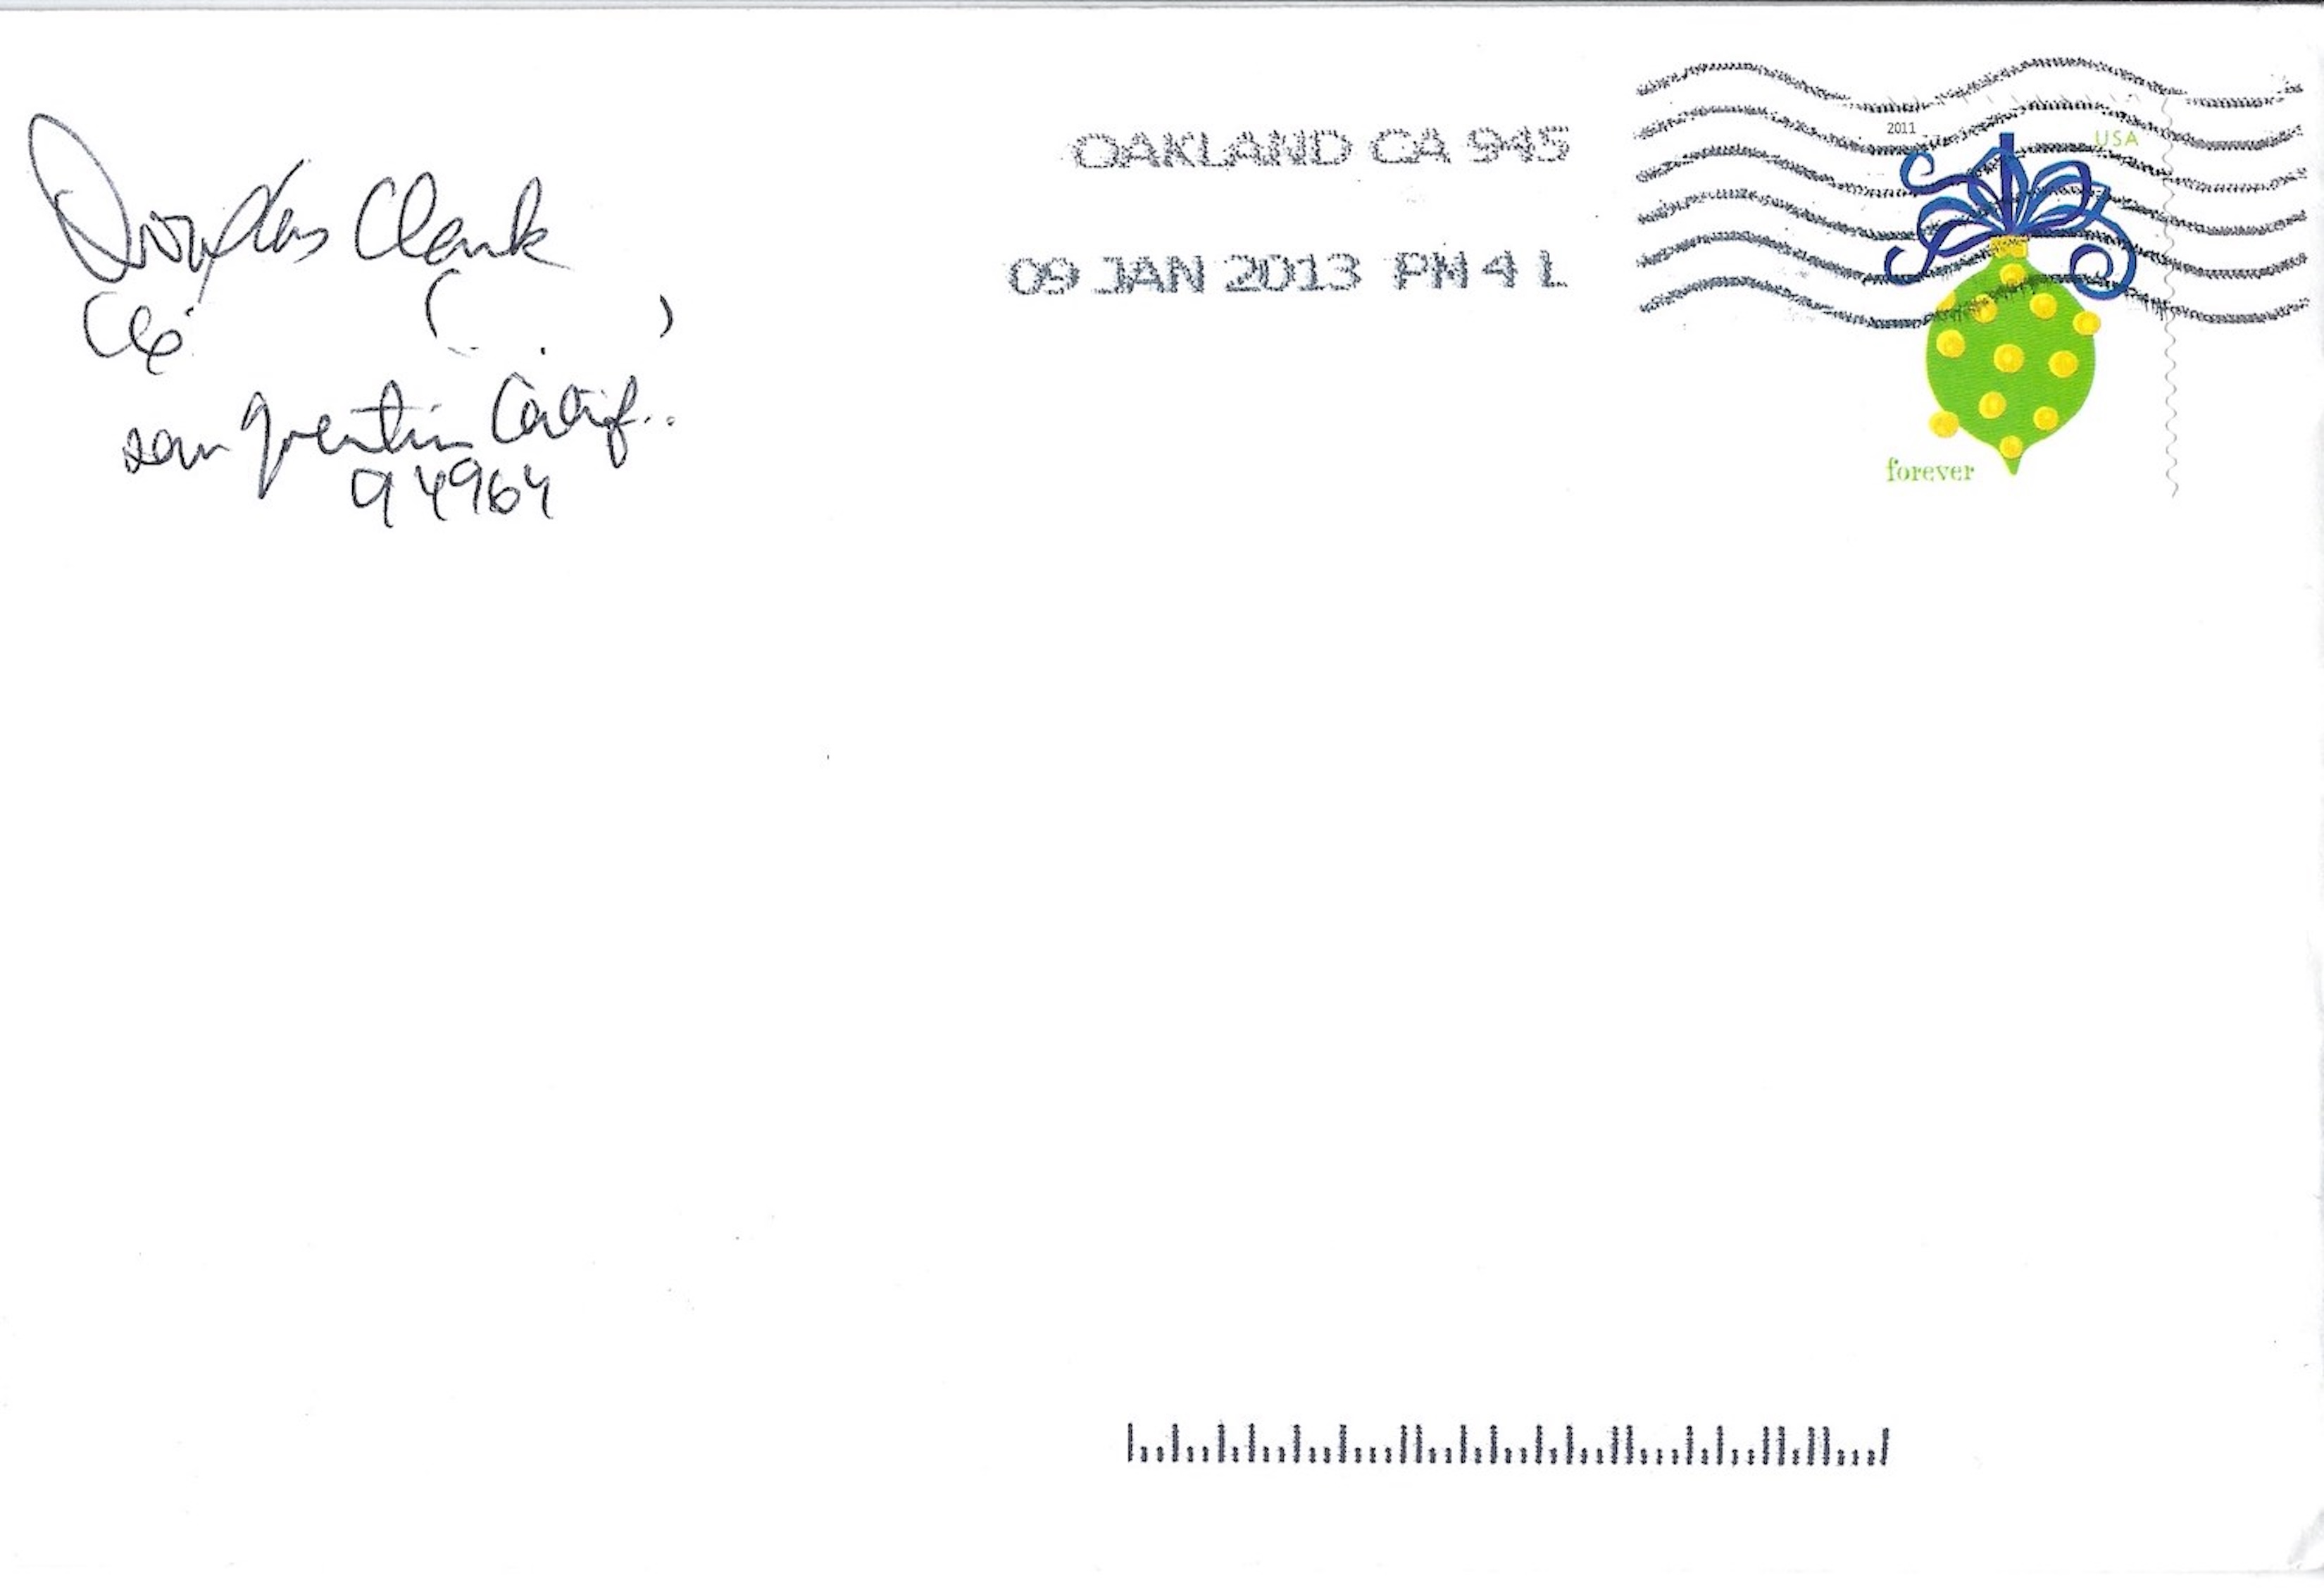 Douglas Clark
( )
San Quentin Calif..
94964
OAKLAND CA 945
09 JAN 2013 PM 4 L
2011
USA
forever